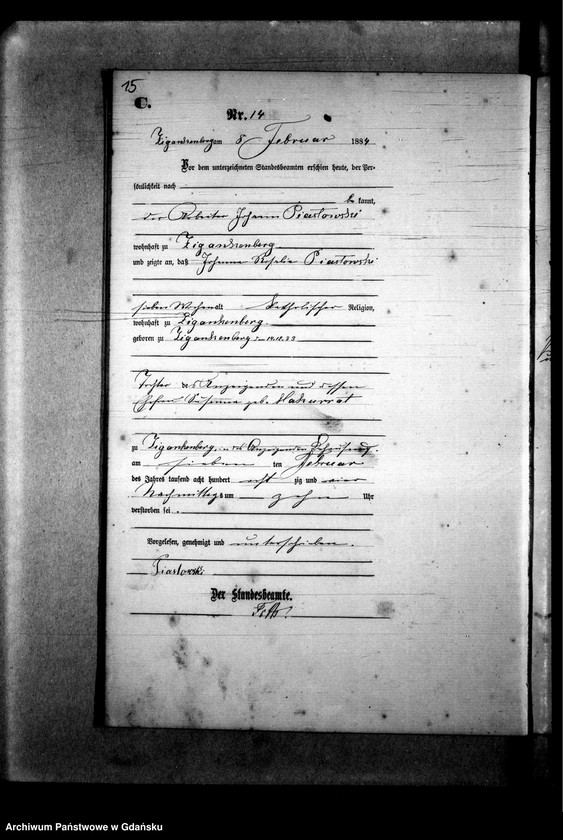 15
C.
Nr. 14
Zigankenberg am 8 Februar 1884
Vor dem unterzeichneten Standesbeamten erschien heute, der Per-
sönlichkeit nach
be kannt,
der Arbeiter Johann Piastowski
wohnhaft zu Zigankenberg
und zeigte an, daß Johanna Rosalie Piastowski
sieben Wochen alt katholischer Religion,
wohnhaft zu Zigankenberg.
geboren zu Zigankenberg am 19.12.83
Tochter des Anzeigenden und dessen
Ehefrau Susanna geb. Makurrat
zu Zigankenberg, in des Anzeigenden Behausung.
am sieben ten Februar
des Jahres tausend acht hundert acht zig und vier
Nachmittags um zehn Uhr
verstorben sei.
Vorgelesen, genehmigt und unterschrieben.
Piastowski
Der Standesbeamte.
Archiwum Państwowe w Gdańsku